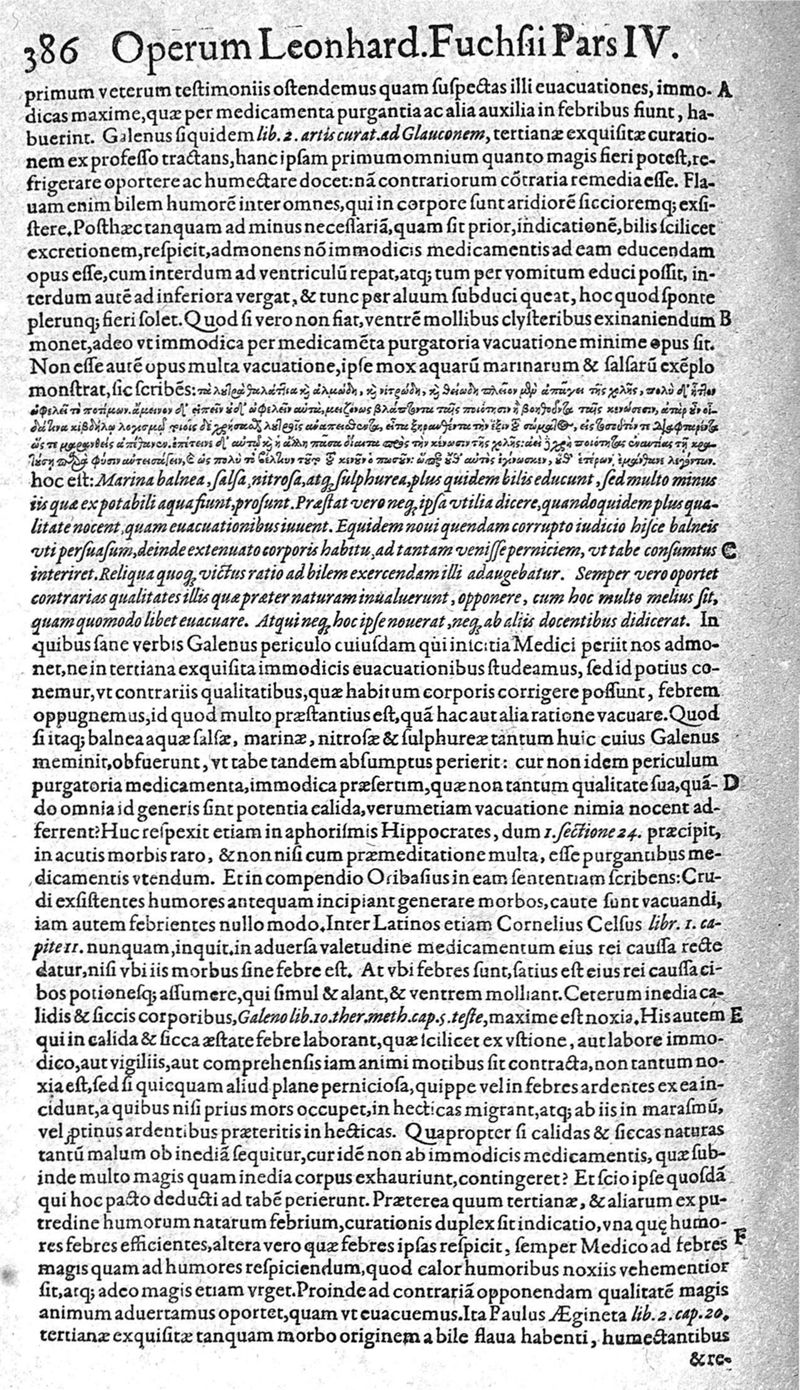 386 Operum Leonhard.Fuchſii Pars IV.
primum veterum teſtimoniis oſtendemus quam ſuſpectas illi euacuationes, immo- A
dicas maxime,quæ per medicamenta purgantia ac alia auxilia in febribus fiunt, ha-
buerint. Galenus ſiquidem lib. 2. artis curat. ad Glauconem, tertianæ exquiſitæ curatio-
nem ex profeſſo tractans,hanc ipſam primum omnium quanto magis fieri poteſt,re-
frigerare oportere ac humectare docet:nã contrariorum cõtraria remedia eſſe. Fla-
uam enim bilem humorẽ inter omnes,qui in corpore ſunt aridiorẽ ſiccioremq; exſi-
ſtere.Poſthæc tanquam ad minus neceſſariã,quam ſit prior,indicationẽ,bilis ſcilicet
excretionem,reſpicit,admonens nõ immodicis medicamentis ad eam educendam
opus eſſe,cum interdum ad ventriculũ repat,atq; tum per vomitum educi poſſit, in-
terdum autẽ ad inferiora vergat, & tunc per aluum ſubduci queat, hoc quod ſponte
plerunq; fieri ſolet.Quod ſi vero non fiat,ventrẽ mollibus clyſteribus exinaniendum B
monet,adeo vt immodica per medicamẽta purgatoria vacuatione minime opus ſit.
Non eſſe autẽ opus multa vacuatione,ipſe mox aquarũ marinarum & ſalſarũ exẽplo
monſtrat,ſic ſcribẽs: τὰ λουτρὰ θαλάττια καὶ ἁλμώδη, καὶ νιτρώδη, καὶ θειώδη πλεῖον μὲν ἀπάγει τῆς χολῆς, πολὺ δ' ἧττον
ὠφελεῖ τὸ ποτίμων. ἄμεινον δ' εἰπεῖν οὐδ' ὠφελεῖν αὐτὰ, μειζόνως βλάπτοντα ταῖς ποιότησιν ἢ βοηθοῦντα ταῖς κενώσεσιν,
hoc eſt: Marina balnea, ſalſa, nitroſa, atq; ſulphurea, plus quidem bilis educunt, ſed multo minus
iis quæ ex potabili aqua fiunt,proſunt.Præſtat vero neq; ipſa vtilia dicere,quandoquidem plus qua-
litate nocent,quam euacuationibus iuuent. Equidem noui quendam corrupto iudicio hiſce balneis
vti perſuaſum,deinde extenuato corporis habitu,ad tantam veniſſe perniciem, vt tabe conſumtus C
interiret.Reliqua quoq; victus ratio ad bilem exercendam illi adaugebatur. Semper vero oportet
contrarias qualitates illis quæ præter naturam inualuerunt, opponere, cum hoc multo melius ſit,
quam quomodo libet euacuare. Atqui neq; hoc ipſe nouerat, neq; ab aliis docentibus didicerat. In
quibus ſane verbis Galenus periculo cuiuſdam qui inſcitia Medici periit nos admo-
net,ne in tertiana exquiſita immodicis euacuationibus ſtudeamus, ſed id potius co-
nemur,vt contrariis qualitatibus,quæ habitum corporis corrigere poſſunt, febrem
oppugnemus,id quod multo præſtantius eſt,quã hac aut alia ratione vacuare.Quod
ſi itaq; balnea aquæ ſalſæ, marinæ, nitroſæ & ſulphureæ tantum huic cuius Galenus
meminit,obfuerunt, vt tabe tandem abſumptus perierit: cur non idem periculum
purgatoria medicamenta,immodica præſertim,quæ non tantum qualitate ſua,quã- D
do omnia id generis ſint potentia calida,verumetiam vacuatione nimia nocent ad-
ferrent?Huc reſpexit etiam in aphoriſmis Hippocrates, dum 1.ſectione 24. præcipit,
in acutis morbis raro, & non niſi cum præmeditatione multa, eſſe purgantibus me-
dicamentis vtendum. Et in compendio Oribaſius in eam ſententiam ſcribens:Cru-
di exſiſtentes humores antequam incipiant generare morbos,caute ſunt vacuandi,
iam autem febrientes nullo modo.Inter Latinos etiam Cornelius Celſus libr. 1. ca-
pite 11. nunquam,inquit,in aduerſa valetudine medicamentum eius rei cauſſa recte
datur,niſi vbi iis morbus ſine febre eſt. At vbi febres ſunt,ſatius eſt eius rei cauſſa ci-
bos potionesq; aſſumere,qui ſimul & alant,& ventrem molliant.Ceterum inedia ca-
lidis & ſiccis corporibus,Galeno lib.10.ther.meth.cap.5.teſte,maxime eſt noxia.His autem E
qui in calida & ſicca æſtate febre laborant,quæ ſcilicet ex vſtione, aut labore immo-
dico,aut vigiliis,aut comprehenſis iam animi motibus ſit contracta,non tantum no-
xia eſt,ſed ſi quicquam aliud plane pernicioſa,quippe vel in febres ardentes ex ea in-
cidunt,a quibus niſi prius mors occupet,in hecticas migrant,atq; ab iis in maraſmũ,
vel ꝓtinus ardentibus præteritis in hecticas. Quapropter ſi calidas & ſiccas naturas
tantũ malum ob inediã ſequitur,cur idẽ non ab immodicis medicamentis, quæ ſub-
inde multo magis quam inedia corpus exhauriunt,contingeret? Et ſcio ipſe quoſdã
qui hoc pacto deducti ad tabẽ perierunt. Præterea quum tertianæ, & aliarum ex pu-
tredine humorum natarum febrium,curationis duplex ſit indicatio,vna quę humo-
res febres efficientes,altera vero quæ febres ipſas reſpicit, ſemper Medico ad febres F
magis quam ad humores reſpiciendum,quod calor humoribus noxiis vehementior
ſit,atq; adeo magis etiam vrget.Proinde ad contrariã opponendam qualitatẽ magis
animum aduertamus oportet,quam vt euacuemus.Ita Paulus Ægineta lib. 2. cap. 20.
tertianæ exquiſitæ tanquam morbo originem a bile flaua habenti, humectantibus
& re-